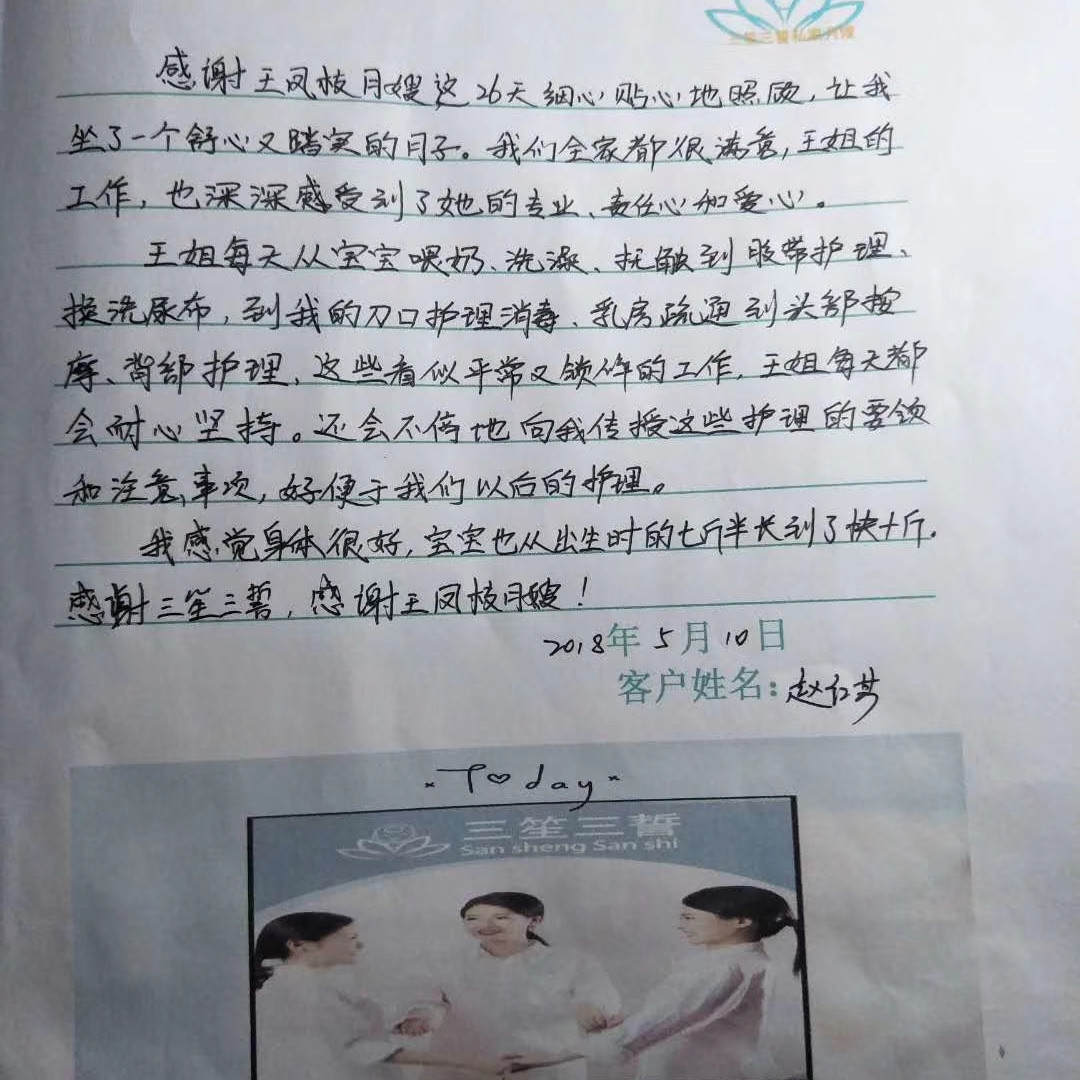 三笙三誓私家月嫂
感谢王凤枝月嫂这26天细心贴心地照顾，让我
坐了一个舒心又踏实的月子。我们全家都很满意，王姐的
工作，也深深感受到了她的专业、责任心和爱心。
王姐每天从宝宝喂奶、洗澡、抚触到脐带护理、
换洗尿布，到我的刀口护理消毒、乳房疏通到头部按
摩、背部护理，这些看似平常又锁碎的工作，王姐每天都
会耐心坚持。还会不停地向我传授这些护理的要领
和注意事项，好便于我们以后的护理。
我感觉身体很好，宝宝也从出生时的七斤半长到了快十斤.
感谢三笙三誓，感谢王凤枝月嫂！
2018年5月10日
客户姓名：赵红
Today
三笙三誓
San sheng San shi